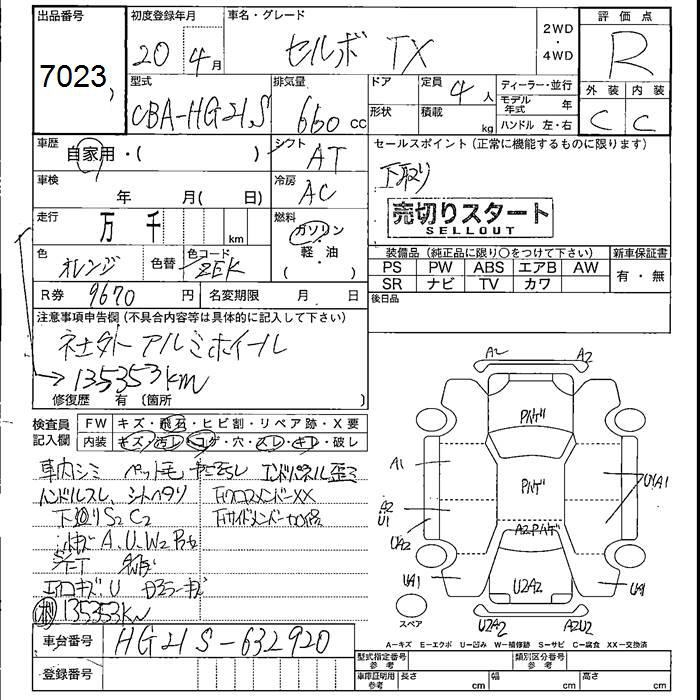 出品番号
7023
初度登録年月
20年4月
車名・グレード
セルボ TX
2WD・4WD
評価点
R
型式
CBA-HG21S
排気量
660cc
ドア
形状
定員 4人
積載 kg
ディーラー・並行
モデル年式 年
ハンドル 左・右
外装 内装
C C
車歴
自家用・( )
シフト
AT
セールスポイント(正常に機能するものに限ります)
下取り
車検
年 月( 日)
冷房
AC
売切りスタート
SELLOUT
走行
万 千 km
燃料
ガソリン・軽・油
( )
色
オレンジ
色替
色コード
ZEK
装備品(純正品に限り○をつけて下さい)
新車保証書
PS PW ABS エアB AW
SR ナビ TV カワ
有・無
R券 9670円
名変期限 月 日
後日品
注意事項申告欄(不具合内容等は具体的に記入して下さい)
社外アルミホイール
→135353km
修復歴 有(箇所 )
検査員記入欄
FW キズ・飛石・ヒビ割・リペア跡・X要
内装 キズ・汚レ・コゲ・穴・スレ・キレ・破レ
車内シミ ペット毛 エンドパネル歪ミ
ハンドルスレ、シートヘタリ
下廻りS2C2
A、U、W2
エアロキズ、U
135353km
車台番号 HG21S-632920
登録番号
A2 A2
Pハゲ
A1
PハゲU1A1
A2
U1
UA2
A2Pハゲ
UA1
U2A2
UA1
スペア
U2A2 A2U2
A-キズ E-エクボ U-凹み W-補修跡 S-サビ C-腐食 XX-交換済
型式指定番号 参考
類別区分番号 参考
車庫証明用 参考
長さ cm 幅 cm 高さ cm